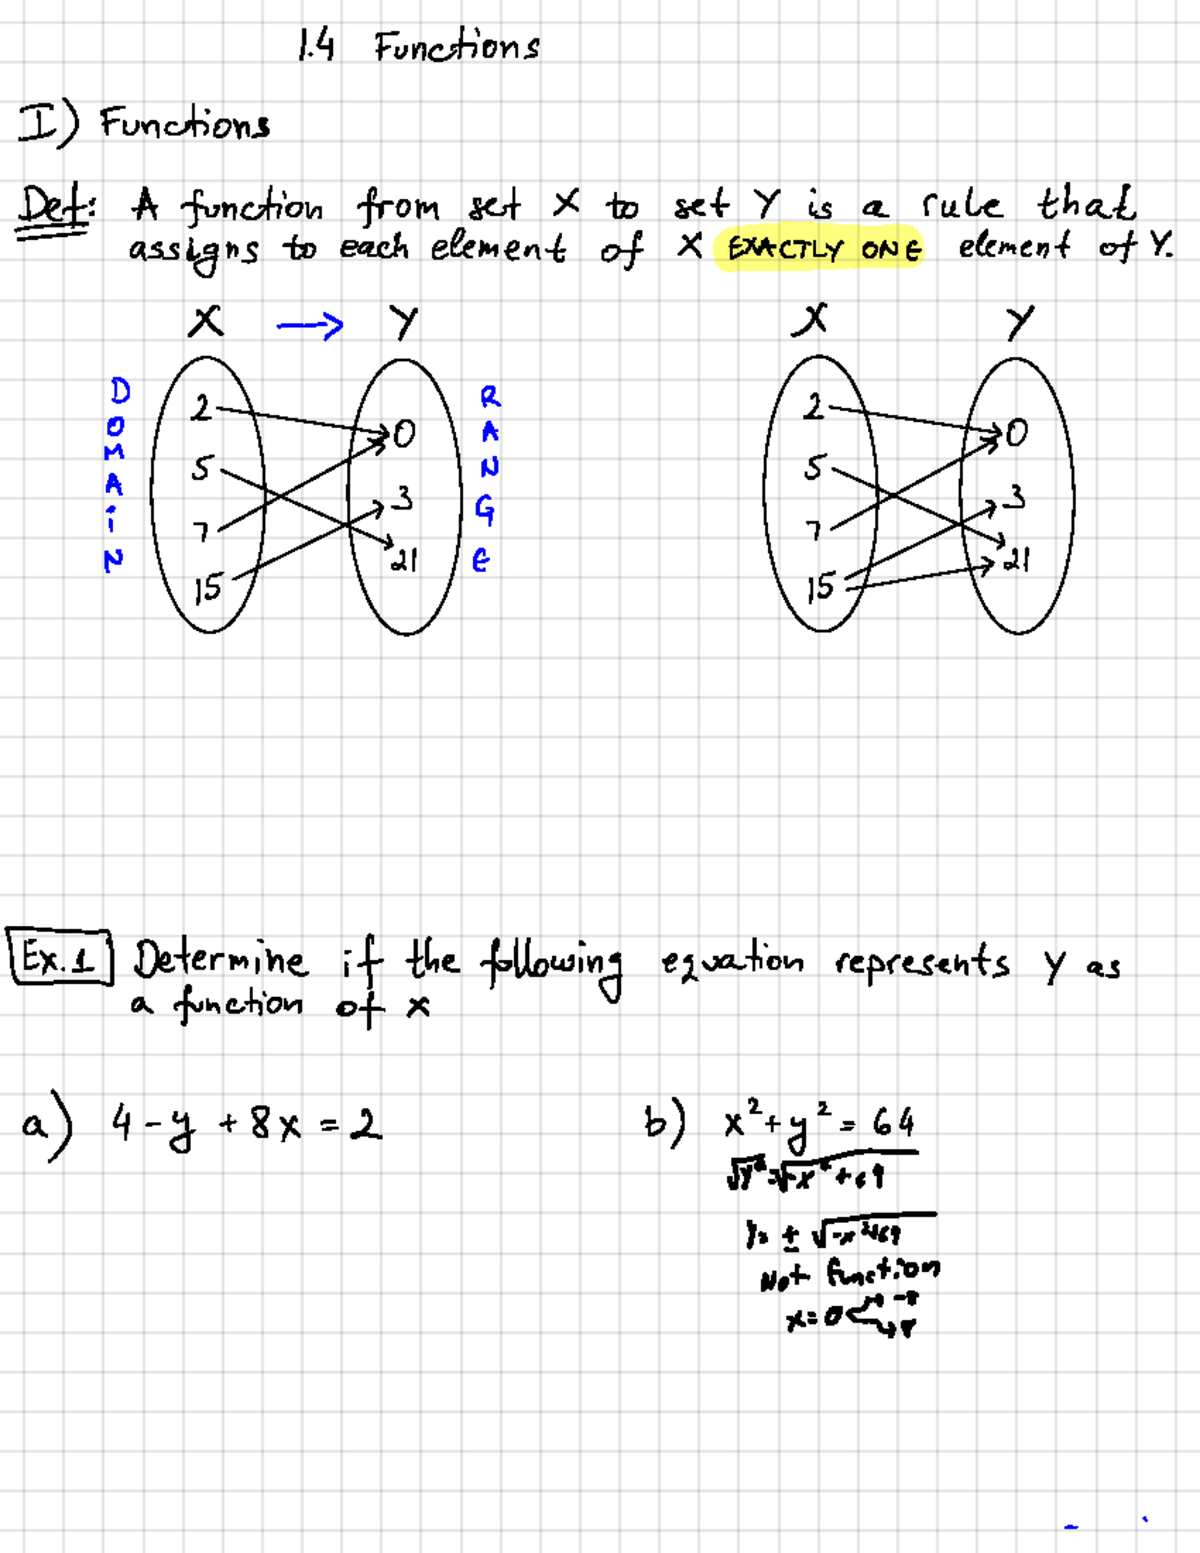 1.4 Functions
I) Functions
Def: A function from set X to set Y is a rule that
assigns to each element of X EXACTLY ONE element of Y.
X → Y
DOMAiN
2
5
7
15
0
3
21
RANGE
X Y
2
5
7
15
0
3
21
Ex.1 Determine if the following equation represents y as
a function of x
a) 4 - y + 8x = 2
b) x² + y² = 64
√y² = √-x² + 64
y = ± √-x² + 64
Not function
x = 0